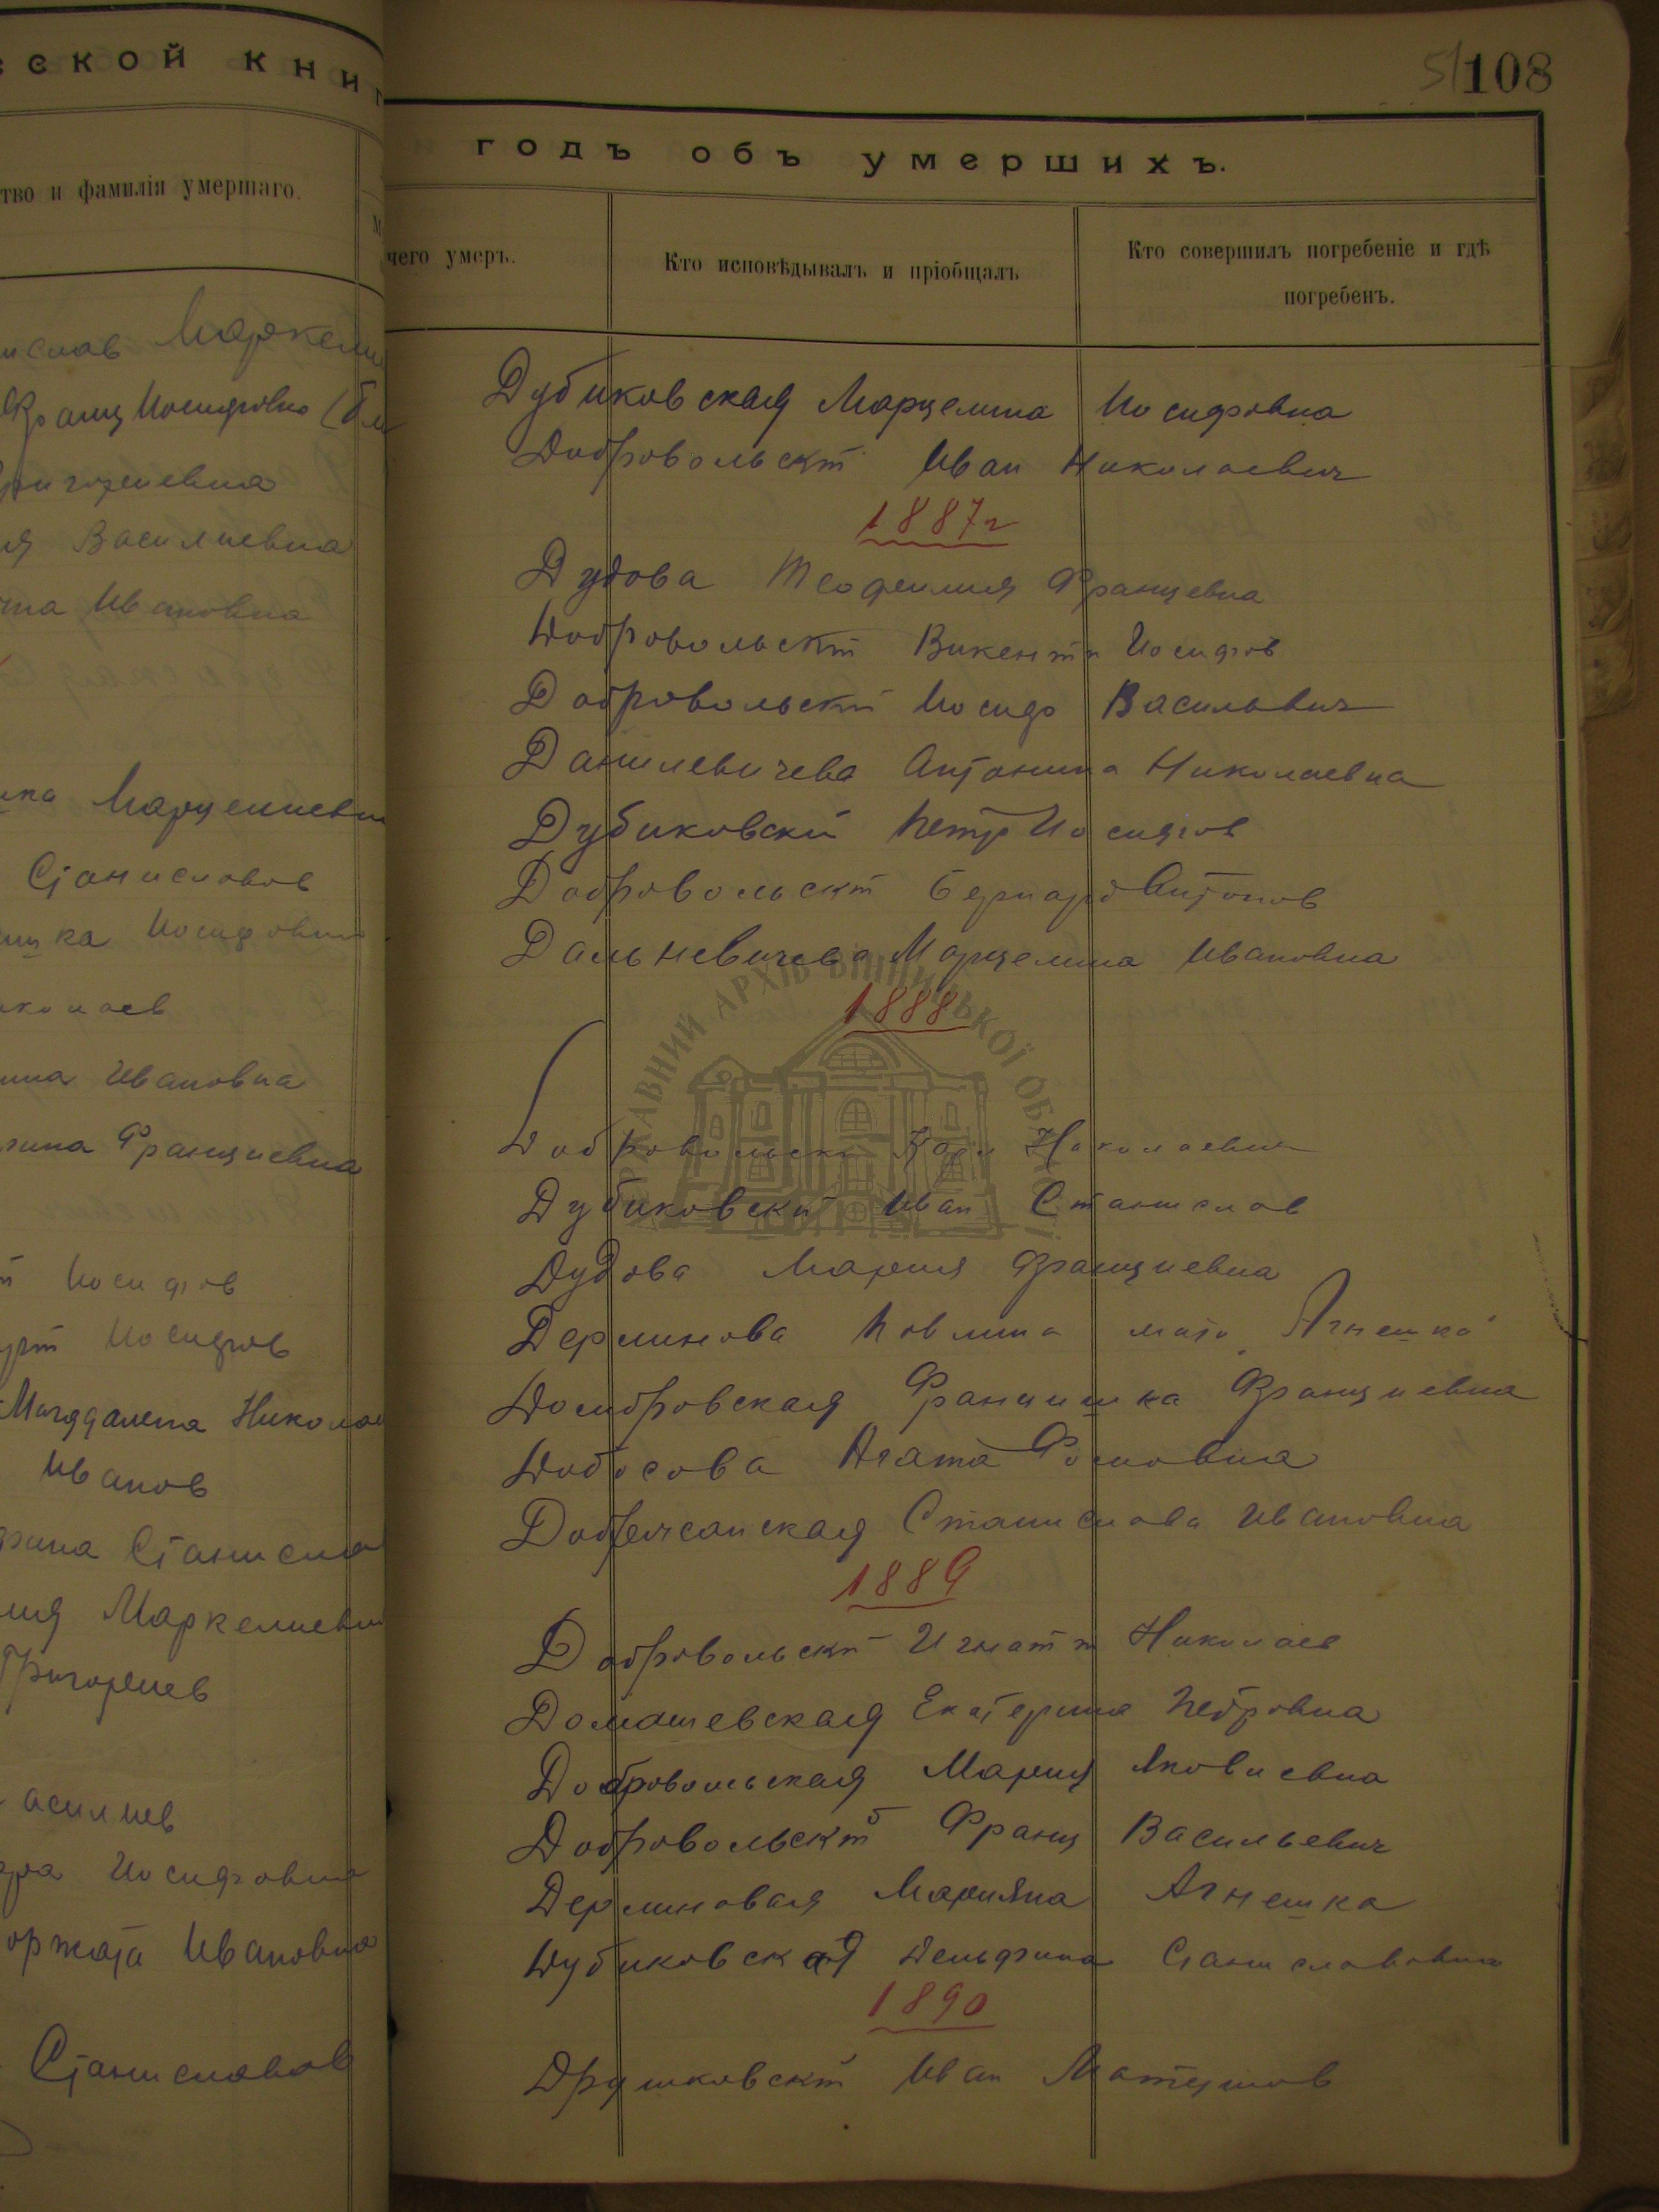 ской кни
тво и фамилія умершаго.
ислав Маркели
Франц Иосифовна
Григориевна
ия Василиевна
Ивановна
Марцелиевн
Станиславов
шка Иосифовна
николаев
Ивановна
Францiевна
Иосифов
Иосифов
Магдалена Никола
Иванов
Станисла
лия Маркелиевн
Григориев
асилиев
Иосифовна
Ивановна
Станиславов
51 108
годъ объ умершихъ.
чего умеръ.
Кто исповѣдывалъ и пріобщалъ
Кто совершилъ погребеніе и гдѣ
погребенъ.
Дубиковская Марцелина Иосифовна
Добровольскій Иван Николаевич
1887г
Дудова Теофилия Францевна
Добровольскій Викентій Иосифов
Добровольскій Иосиф Васильвич
Данилевичева Антонина Николаевна
Дубиковскій Петр Иосифов
Добровольскій Бернард Антонов
Дальневичева Марцелина Ивановна
1888
Добровольскій Карл Николаевич
Дубиковскій Иван Станислав
Дудова Мария Франциевна
Дерлинова Павлина мать Агнешка
Домбровская Франишка Франциевна
Добосова Агата Фомовна
Станислава Ивановна
1889
Добровольскій Игнатій Николаев
Домашевская Екатерина Петровна
Добровольская Мария Яковлевна
Добровольскій Франц Васильевич
Дерлиновая Марияна Агнешка
Дубиковская Дельфина Станиславовна
1890
Друшковскій Иван Матеушов
ДЕРЖАВНИЙ АРХІВ ВІННИЦЬКОЇ ОБЛАСТІ